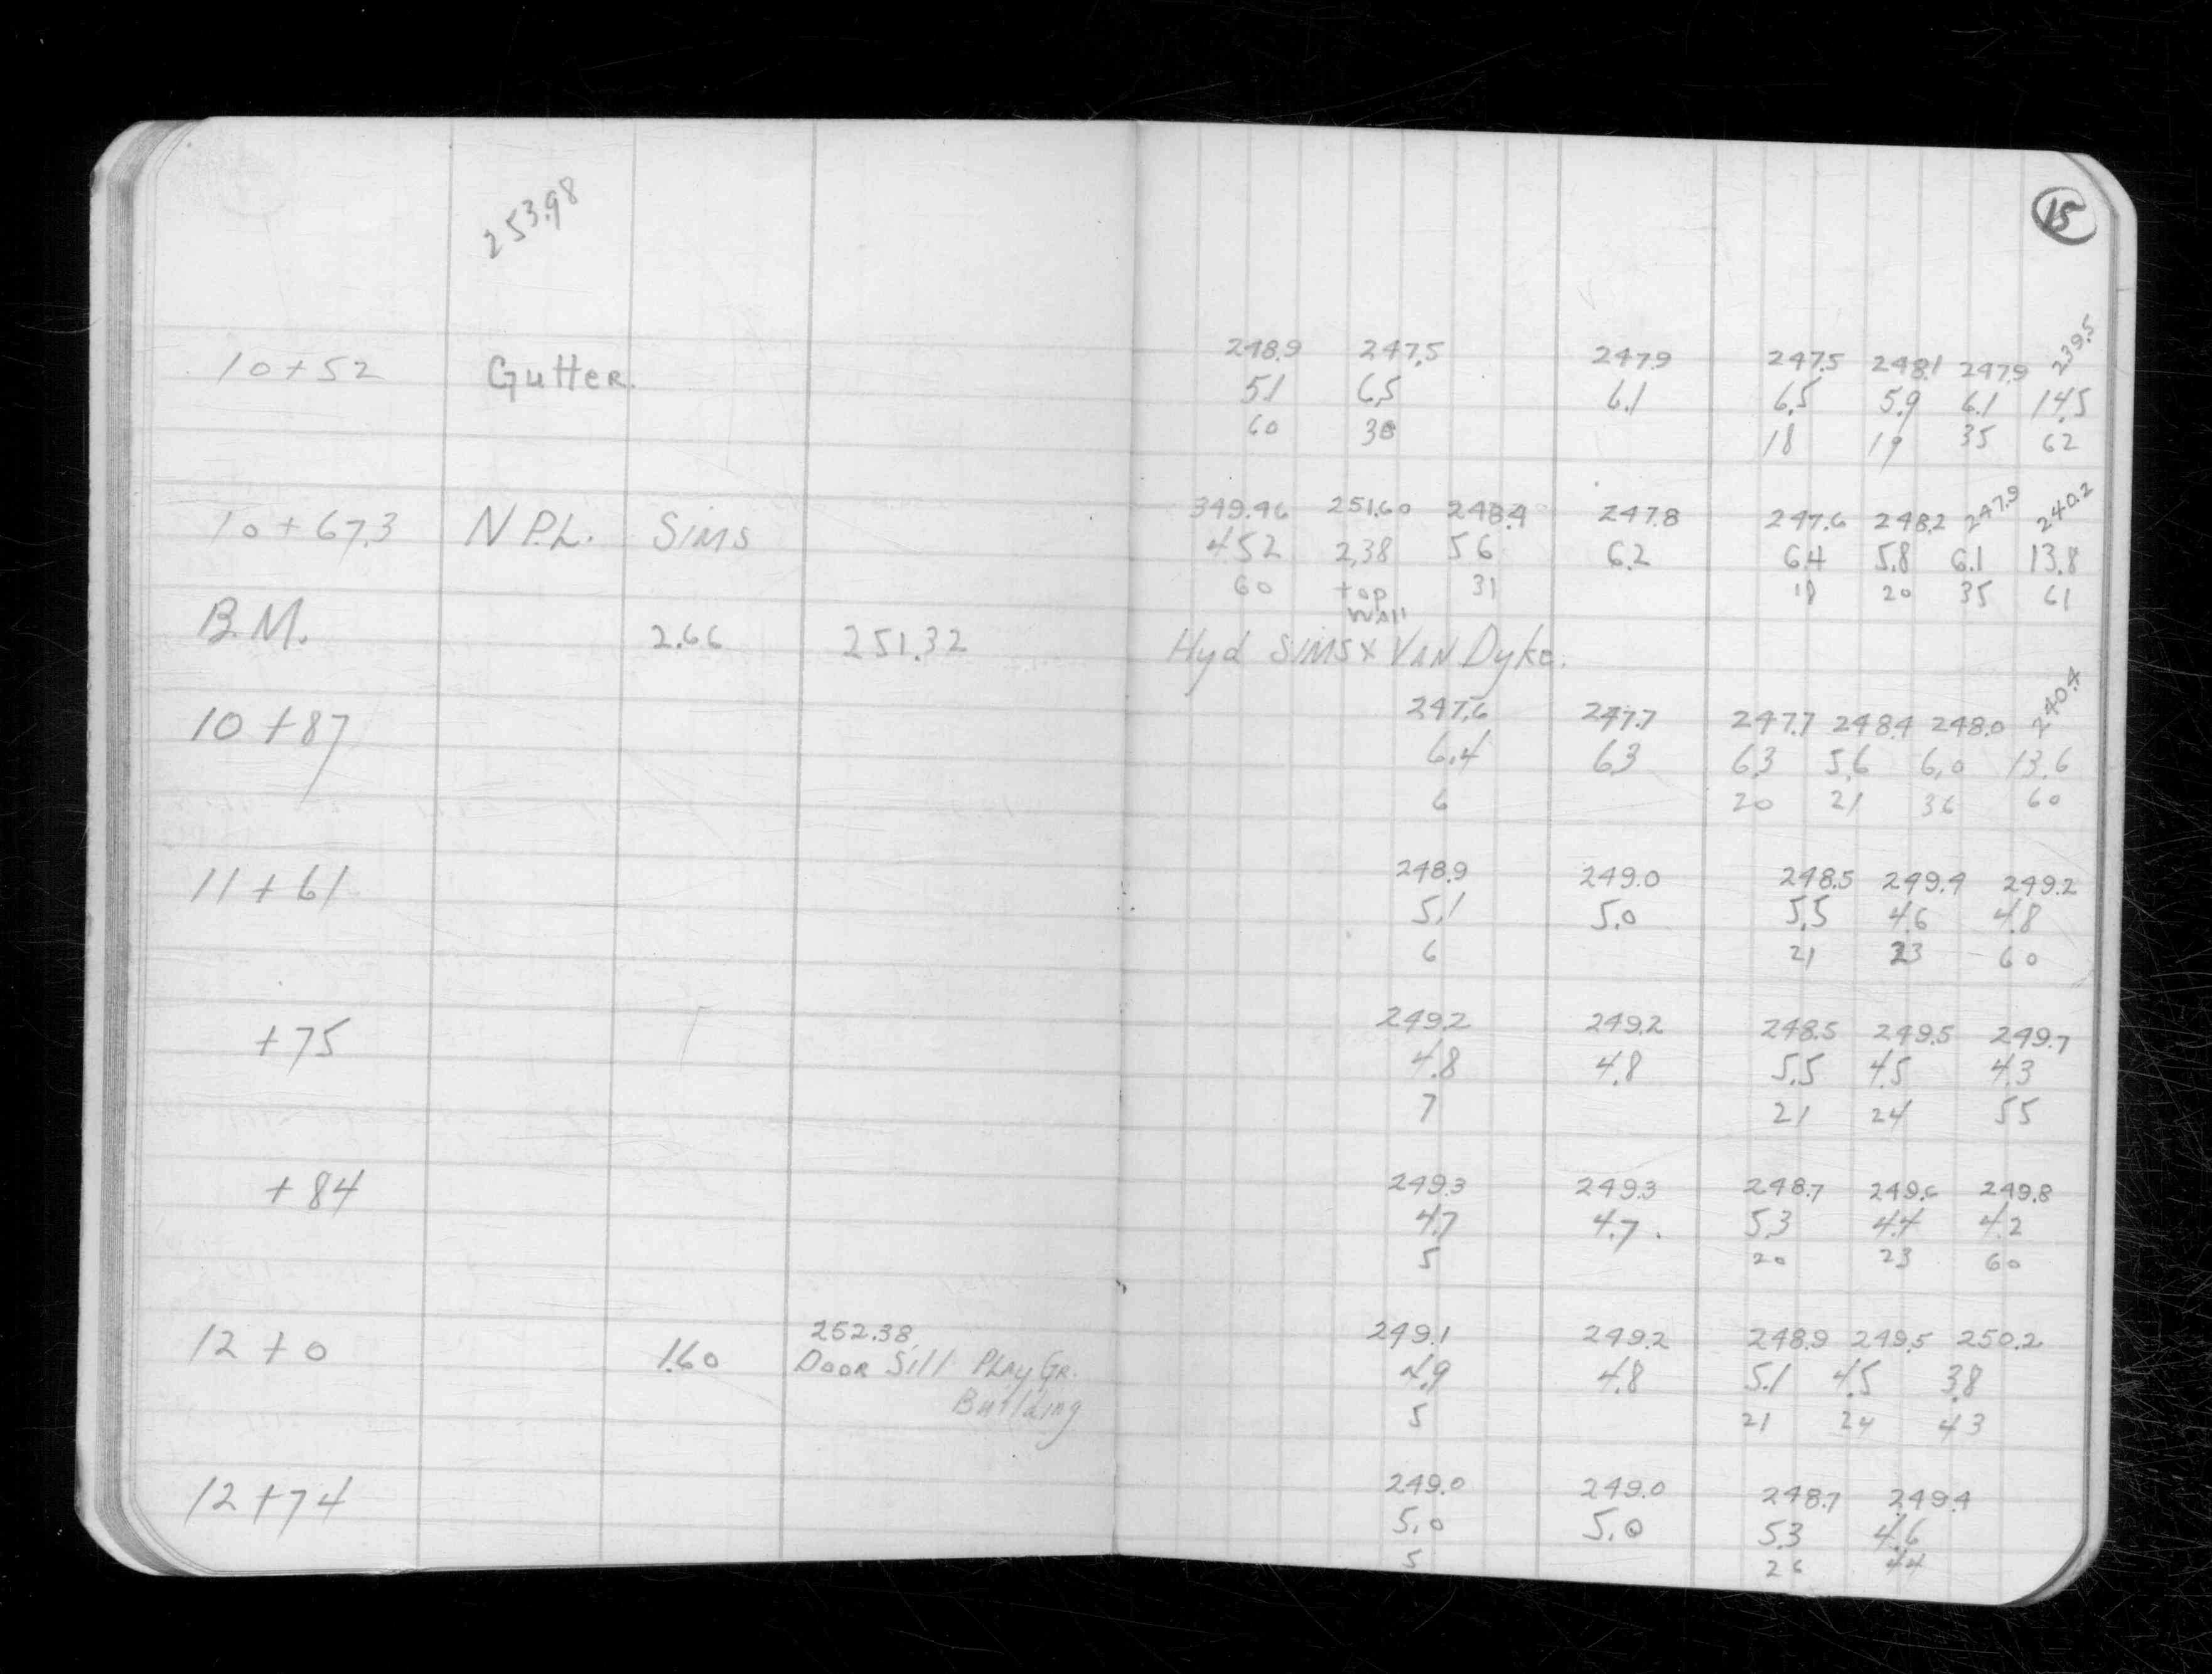 15
253.98
248.9 247.5 247.9 247.5 248.1 247.9 239.5
10+52 Gutter. 5.1 6.5 6.1 6.5 5.9 6.1 14.5
60 30 18 19 35 62
349.46 251.60 248.4 247.8 247.6 248.2 247.9 240.2
10+67.3 N P.L. Sims 4.52 2.38 5.6 6.2 6.4 5.8 6.1 13.8
60 top 31 18 20 35 61
Wall
B.M. 2.66 251.32 Hyd Sims x Van Dyke.
247.6 247.7 247.7 248.4 248.0 240.4
10+87 6.4 6.3 6.3 5.6 6.0 13.6
6 20 21 36 60
248.9 249.0 248.5 249.4 249.2
11+61 5.1 5.0 5.5 4.6 4.8
6 21 23 60
249.2 249.2 248.5 249.5 249.7
+75 4.8 4.8 5.5 4.5 4.3
7 21 24 55
249.3 249.3 248.7 249.6 249.8
+84 4.7 4.7. 5.3 4.4 4.2
5 20 23 60
252.38 249.1 249.2 248.9 249.5 250.2
12+0 1.60 Door Sill Play Gr. 4.9 4.8 5.1 4.5 3.8
Building 5 21 24 43
249.0 249.0 248.7 249.4
12+74 5.0 5.0 5.3 4.6
5 26 44